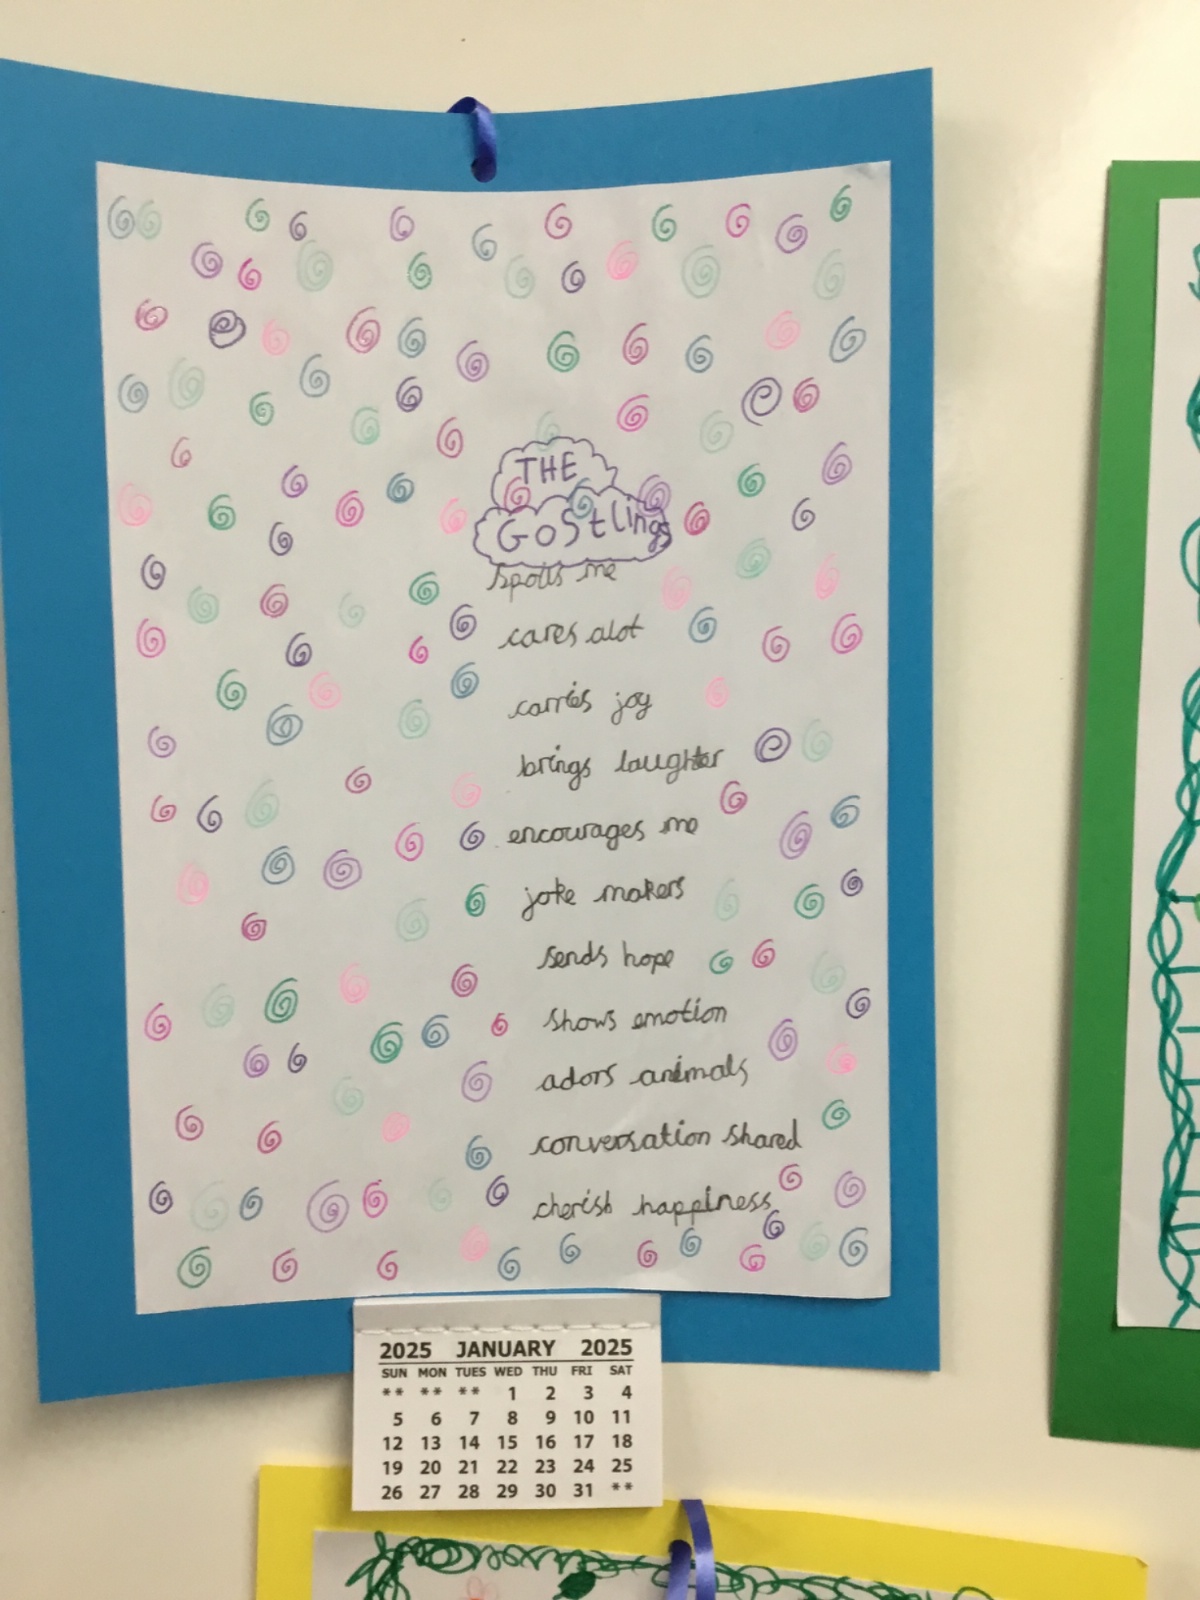 THE
GoStlings
spoils me
cares alot
carries joy
brings laughter
encourages me
joke makers
sends hope
shows emotion
adors animals
conversation shared
cherish happiness
2025 JANUARY 2025
SUN MON TUES WED THU FRI SAT
** ** ** 1 2 3 4
5 6 7 8 9 10 11
12 13 14 15 16 17 18
19 20 21 22 23 24 25
26 27 28 29 30 31 **